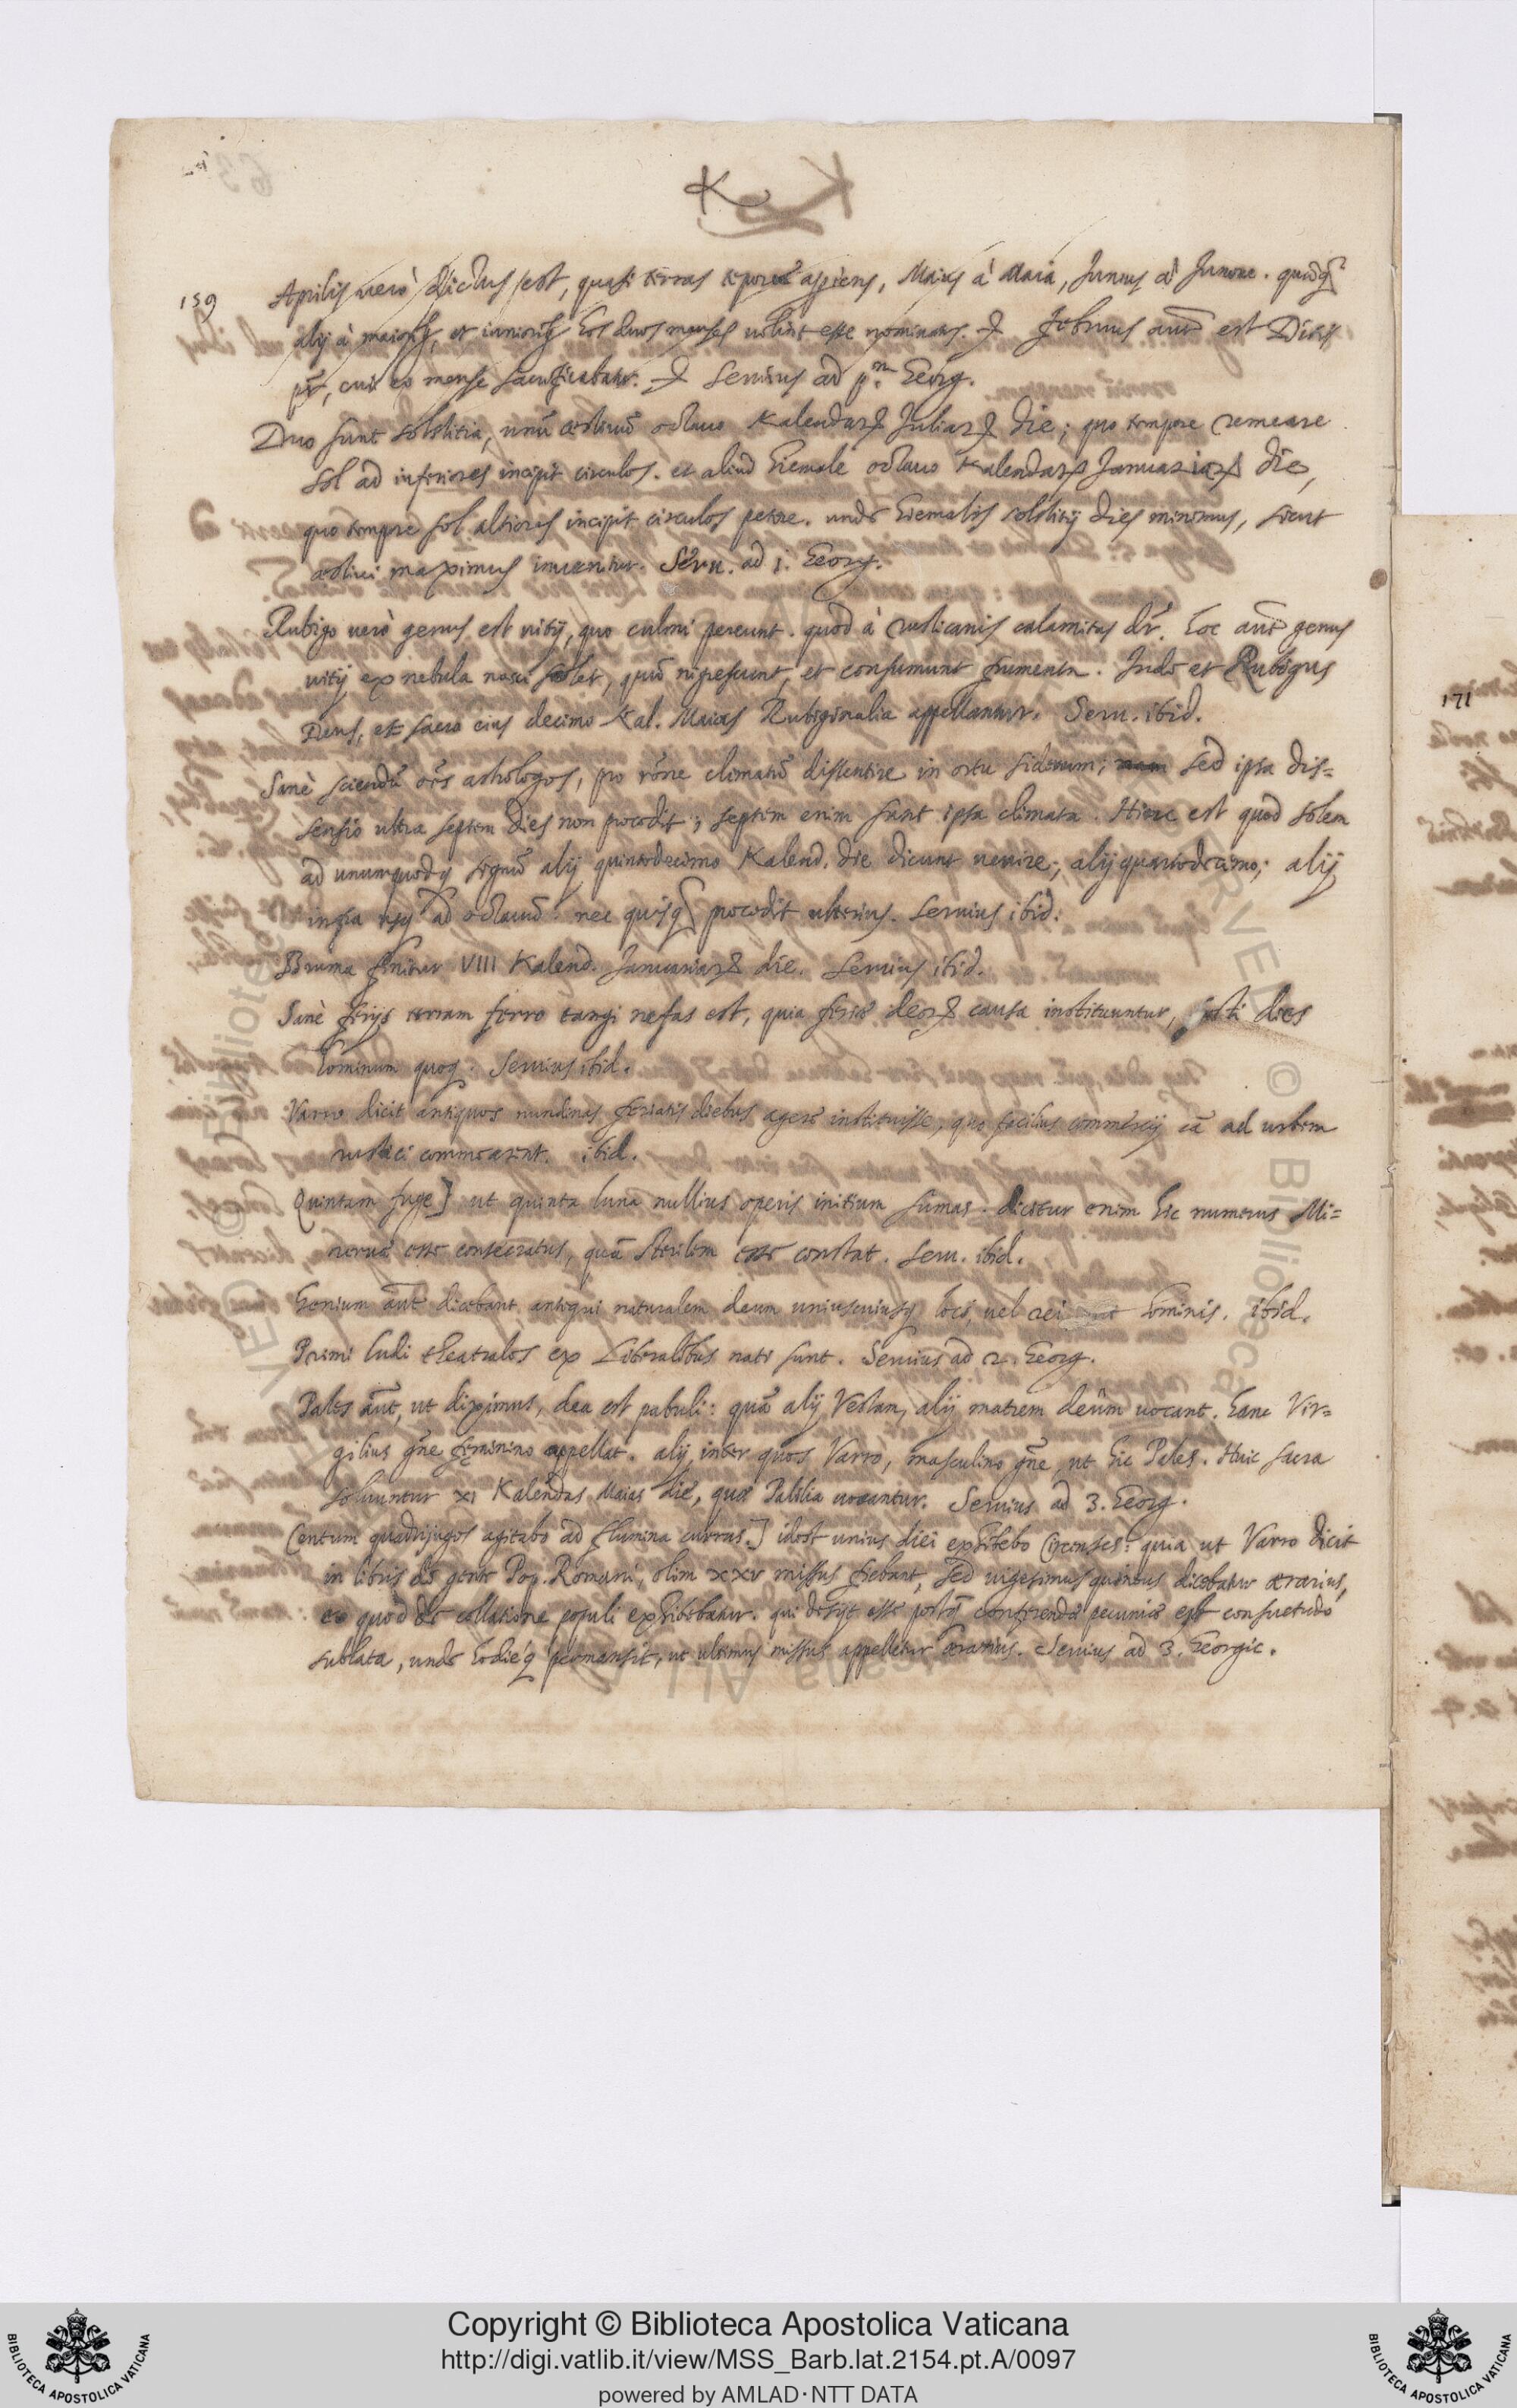 K
159
Aprilis uerò dictus est, quasi terras tepore aperiens, Maius à Maia, Junius à Junone. quãq̃
alij à maioribꝫ, et iunioribꝫ hos duos menses uolunt esse nominatos. Februus aut̃ est Ditis
pr̃, cui eo mense sacrificabatur. Seruius ad p.m Georg.
Duo sunt solstitia, unũ æstiuũ octauo Kalendarꝝ Juliarꝝ die; quo tempore remeare
sol ad inferiores incipit circulos. et aliud hiemale octauo Kalendarꝝ Januariarꝝ die,
quo tempore sol altiores incipit circulos petere. unde hiemalis solstitij dies minimus, sicut
æstiui maximus inuenitur. Seru. ad 1. Georg.
Rubigo uerò genus est uitij, quo culmi pereunt. quod à rusticanis calamitas dr̃. hoc aut̃ genus
uitij ex nebula nasci solet, quũ nigrescunt, et consumunt frumenta. Inde et Rubigus
Deus, et sacra eius decimo Kal. Maias Rubiginalia appellantur. Seru. ibid.
Sanè sciendũ oẽs astrologos, pro rõne climatũ dissentire in ortu siderum; sed ipsa dis=
sensio ultra septem dies non procedit; septem enim sunt ipsa climata. Hinc est quod solem
ad unumquodqꝫ signũ alij quintodecimo Kalend. die dicunt uenire; alij quartodecimo; alij
infra usqꝫ ad octauũ. nec quisq̃ procedit ulterius. Seruius ibid.
Bruma finitur VIII Kalend. Januariarꝝ die. Seruius ibid.
Sanè ferijs terram ferro tangi nefas est, quia feriæ deorꝝ causa instituuntur, festi dies
hominum quoqꝫ. Seruius ibid.
Varro dicit antiquos nundinas feriatis diebus agere instituisse, quo facilius commercij cã ad urbem
rustici commearent. ibid.
Quintam fuge] ut quinta luna nullius operis initium sumas. dicitur enim hic numerus Mi=
neruæ esse consecratus, quã sterilem esse constat. Seru. ibid.
Genium aut̃ dicebant antiqui naturalem deum uniuscuiusqꝫ loci, uel rei hominis. ibid.
Primi ludi theatrales ex Liberalibus nati sunt. Seruius ad 2. Georg.
Pales aut̃, ut diximus, dea est pabuli: quã alij Vestam, alij matrem deûm uocant. hanc Vir=
gilius gñe feminino appellat. alij, inter quos Varro, masculino gñe, ut hic Pales. Huic sacra
soluuntur XI Kalendas Maias die, quæ Palilia uocantur. Seruius ad 3. Georg.
Centum quadrijugos agitabo ad flumina currus.] idest unius diei exhibebo Circenses: quia ut Varro dicit
in libris de gente Pop. Romani, olim xxv missus fiebant, sed uigesimusquintus dicebatur ærarius,
eo quod de collatione populi exhibebatur. qui desijt esse postq̃ conferendæ pecuniæ est consuetudo
sublata, unde hodieq̃ permansit, ut ultimus missus appelletur ærarius. Seruius ad 3. Georgic.
171
Copyright © Biblioteca Apostolica Vaticana
http://digi.vatlib.it/view/MSS_Barb.lat.2154.pt.A/0097
powered by AMLAD·NTT DATA
BIBLIOTECA APOSTOLICA VATICANA
BIBLIOTECA APOSTOLICA VATICANA